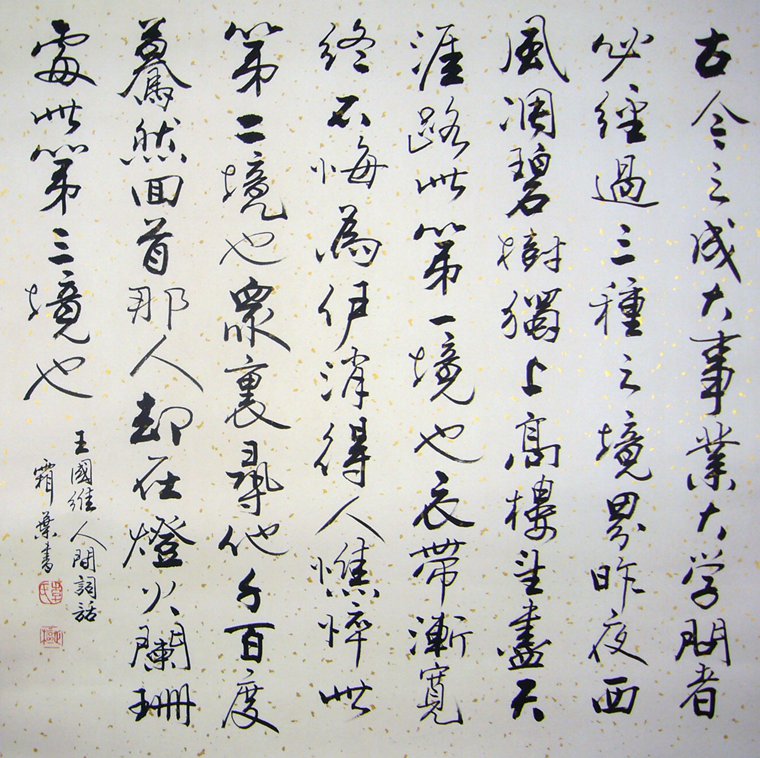 古今之成大事業大学問者
必經過三種之境界昨夜西
風凋碧樹獨上高樓望盡天
涯路此第一境也衣帶漸寬
終不悔為伊消得人憔悴此
第二境也衆裏尋他千百度
驀然回首那人却在燈火闌珊
處此第三境也
王國維人間詞話
霜葉書